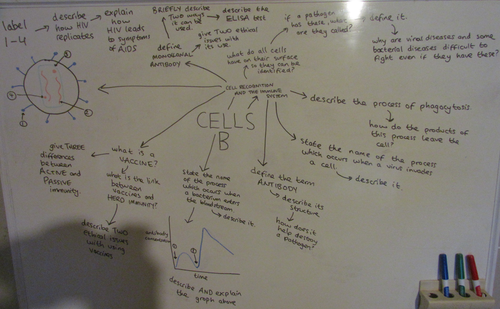 label
1-4
describe
how HIV
replicates
explain
how
HIV leads
to symptoms
of AIDS
BRIEFLY describe
TWO ways
it can be
used.
describe the
ELISA test
define
MONOCLONAL
ANTIBODY
give TWO ethical
issues with
its use.
what do all cells
have on their surface
so they can be
identified?
if a pathogen
has these, what
are they called?
define it.
why are viral diseases and some
bacterial diseases difficult to
fight even if they have these?
CELL RECOGNITION
AND THE IMMUNE
SYSTEM
CELLS
B
describe the process of phagocytosis
how do the products of
this process leave the
cell?
state the name of the process
which occurs when a virus invades
a cell.
describe it.
define the term
ANTIBODY
describe its
structure
how does it
help destroy
a pathogen?
state the name
of the process
which occurs when
a bacterium enters
the bloodstream
describe it.
what is a
VACCINE?
give THREE
differences
between
ACTIVE and
PASSIVE
immunity.
what is the link
between
vaccines and
HERD IMMUNITY?
describe TWO
ethical issues
with using
vaccines
antibody
concentration
time
describe AND explain
the graph above